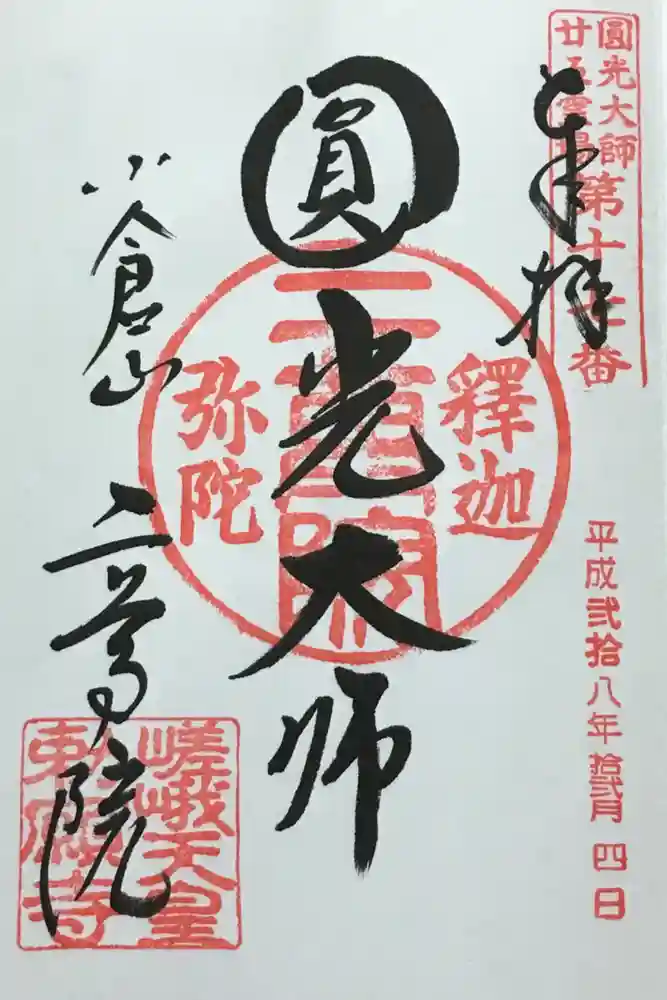 圓光大師
廿五霊場
第十七番
奉拝
平成弐拾八年拾弐月四日
圓光大師
釋迦
二尊院
弥陀
小倉山
二尊院
嵯峨天皇
勅願寺